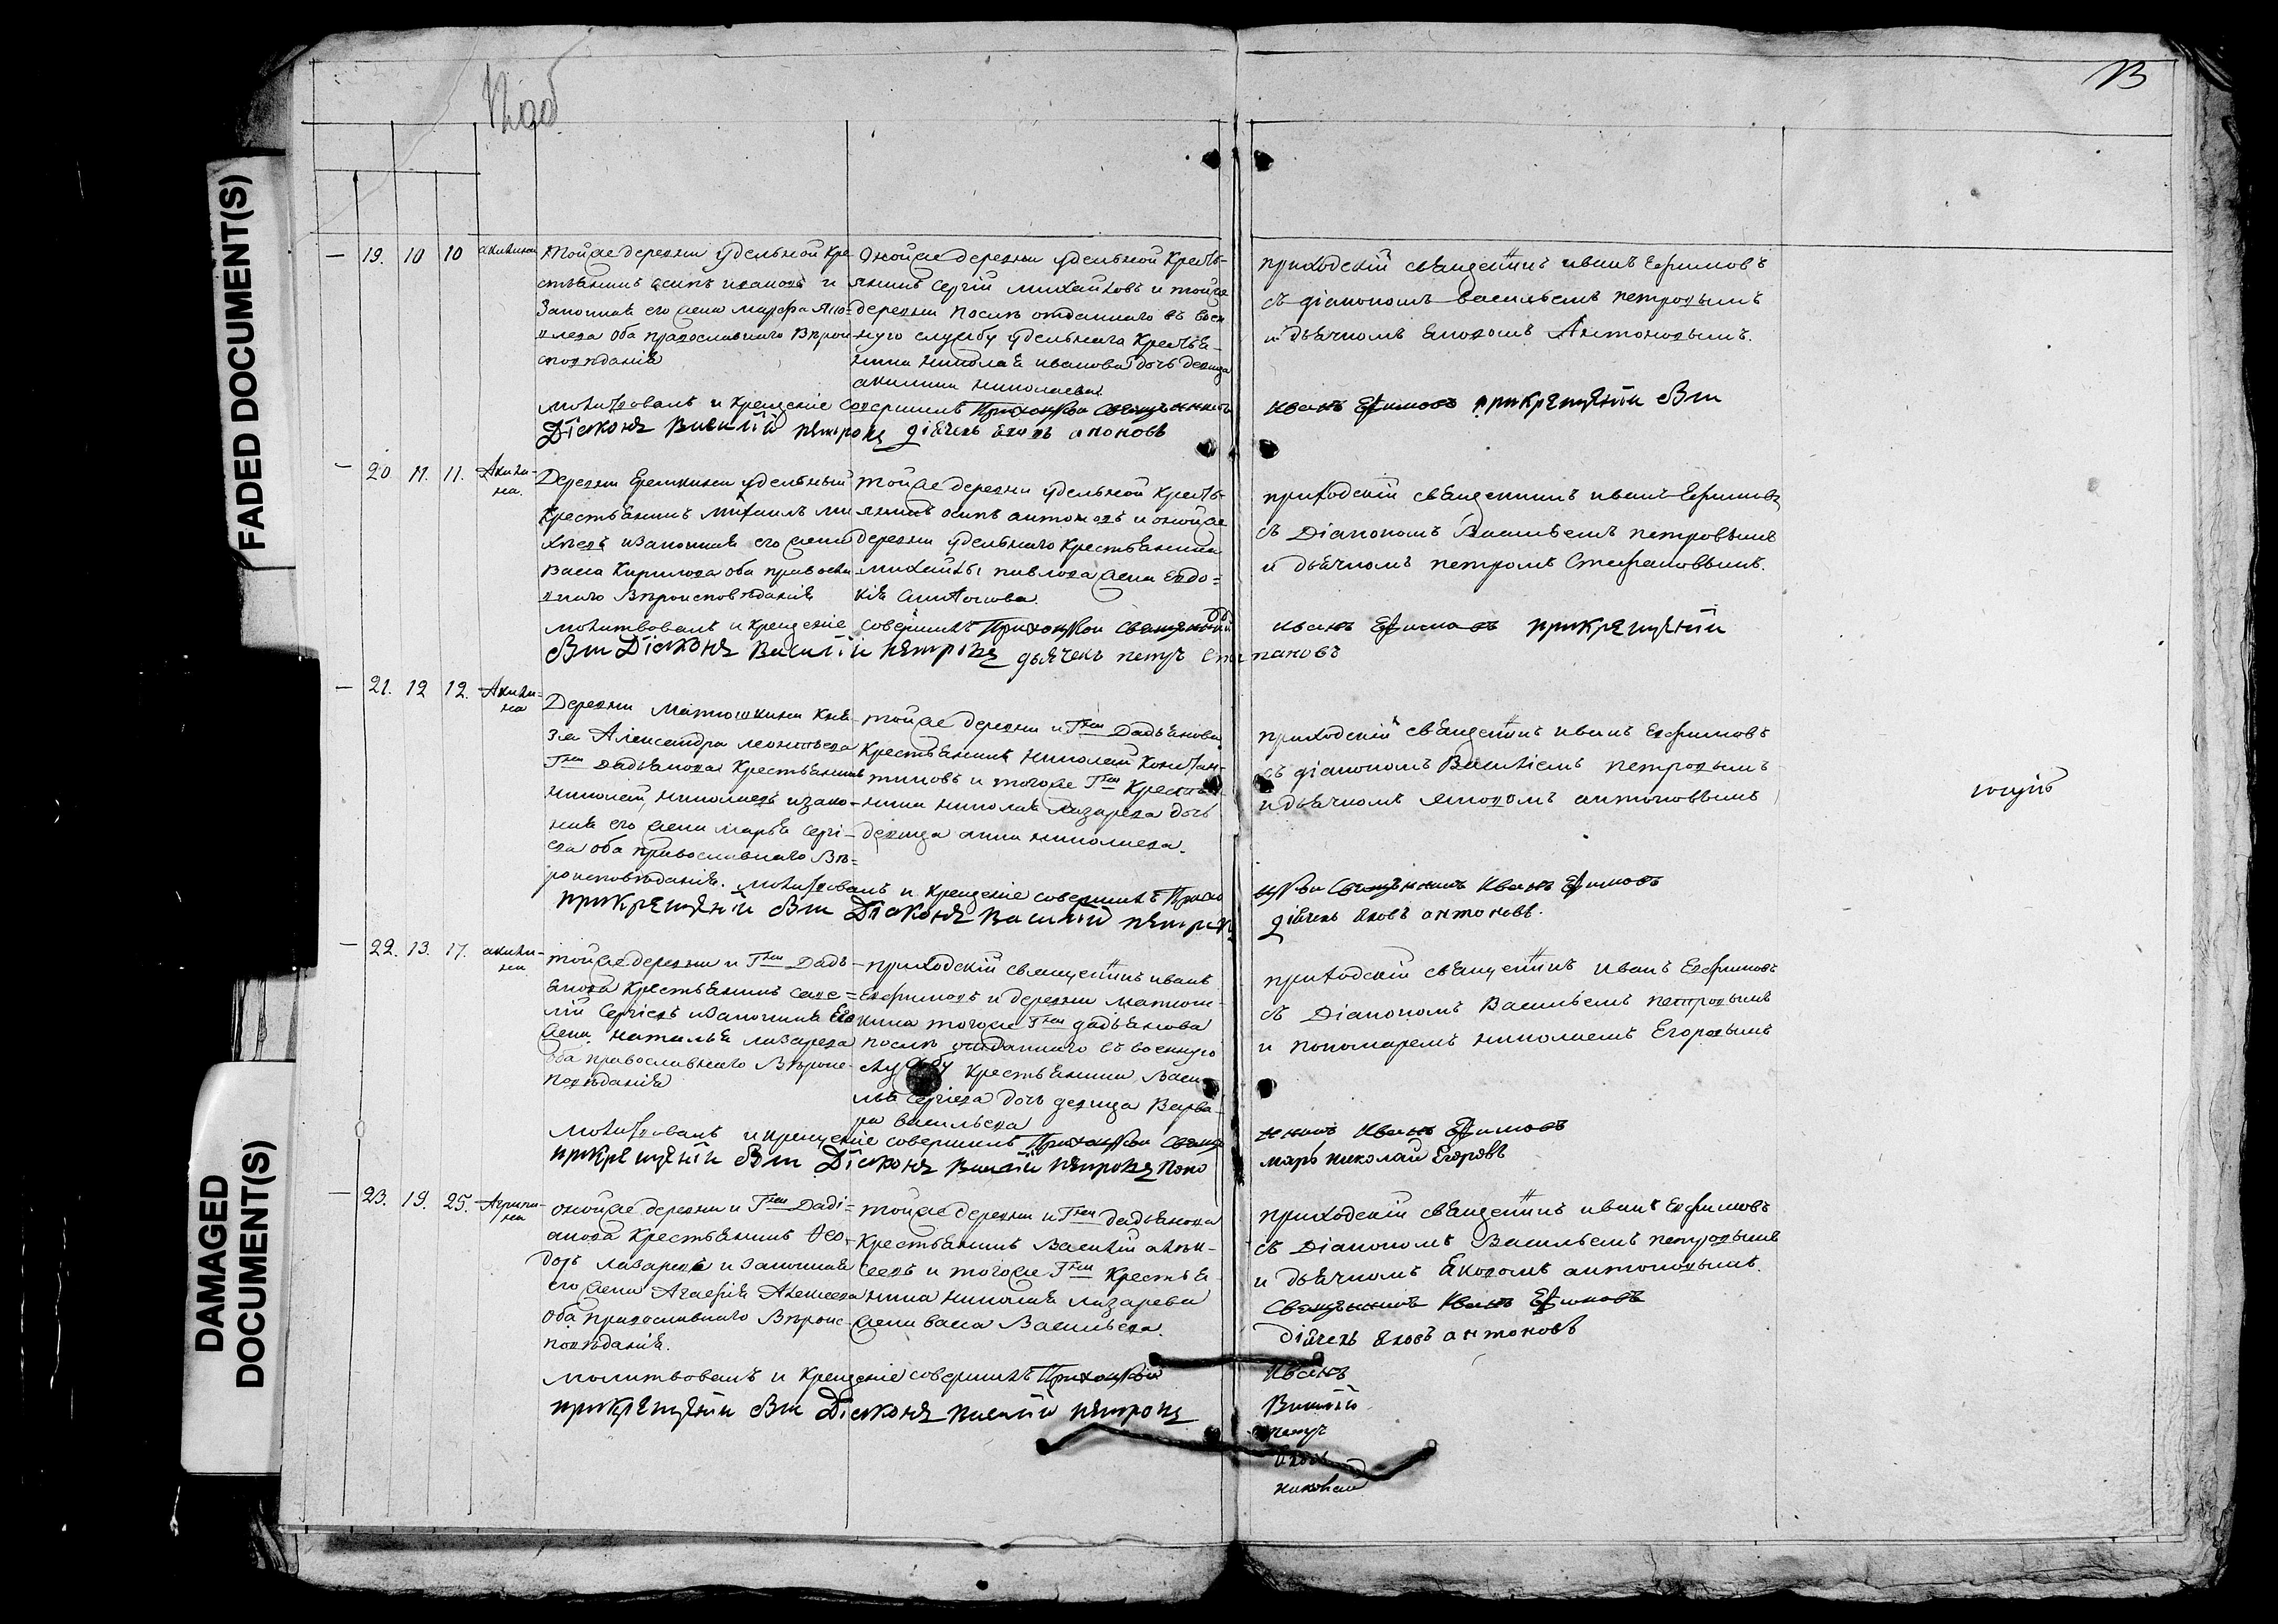 FADED DOCUMENT(S)
DAMAGED DOCUMENT(S)
— 19. 10 10 акилина
тойже деревни удельной кре-
стьянинъ осипъ ивановъ и
законная его жена марфа яко-
влева оба православнаго вѣрои
споведанія
оной же деревни удельной кресть-
янинъ сергій михайловъ и тойже
деревни послѣ отданнаго въ воен
ную службу удельнаго крестья-
нина николая иванова дочь девица
акилина николаева
приходскій священникъ иванъ Ефимовъ
съ діакономъ васильемъ петровымъ
и дьячкомъ яковомъ Антоновымъ.
молитвовалъ и крещеніе совершилъ Приходской Священникъ
иванъ Ефимовъ при крещеніи был
Діаконъ Василій петровъ діячекъ яковъ
— 20. 11. 11. Акили-
на.
Деревни Еремкины удельный
крестьянинъ михаилъ ми
хѣевъ и законная его жена
васа Кирилова оба правосла
внаго вѣроисповѣданія
тойже деревни удельной кресть-
янинъ осипъ антоновъ и онойже
деревни удельнаго крестьянина
михайлы павлова жена Евдо=
кія
приходскій священникъ иванъ Ефимовъ
съ Діакономъ Васильемъ петровымъ
и дьячкомъ петромъ Стефановымъ.
молитвовалъ и крещеніе совершилъ Приходской Священникъ
иванъ Ефимовъ при крещеніи
был Діаконъ Василій петровъ дьячекъ петръ степановъ
— 21. 12 12. Акили=
на
Деревни Матюшкины кня
зя Александра леонтьева
Гна Дадьянова крестьянинъ
николай николаевъ и зако-
ная его жена марья серги-
ева оба православнаго вѣ=
роисповѣданія.
тойже деревни и Гна Дадьянова
крестьянинъ николай констан-
тиновъ и тогоже Гна крестья
нина николая лазарева дочь
девица анна николаева.
приходскій священникъ иванъ Ефимовъ
съ діакономъ Василіемъ петровымъ
и дьячкомъ яковомъ антоновымъ
молитвовалъ и крещеніе совершилъ Прихо
цкои Священникъ Иванъ Ефимовъ
при крещеніи был Діаконъ Василій петровъ
діячекъ яковъ антоновъ.
— 22. 13. 17. акили-
на
тойже деревни и Гна Дадь-
янова крестьянинъ саве=
лій сергіевъ и законная Его
жена наталья лазарева
оба православнаго вѣроис-
поведанія
приходскій священникъ иванъ
Ефимовъ и деревни матюш-
кина тогоже Гна дадьянова
послѣ отданнаго въ военную
службу крестьянина васи-
лья сергіева дочь девица варва-
ра васильева
приходскій священникъ иванъ Ефимовъ
съ Діакономъ Васильемъ петровымъ
и пономаремъ николаемъ Егоровымъ
молитвовалъ и крещеніе совершилъ Приходской Свяще
нникъ Иванъ Ефимовъ
при крещеніи был Діаконъ василій петровъ поно
марь николай Егоровъ
— 23. 19. 25. Агрипи-
на
онойже деревни и Гна Даді=
анова крестьянинъ Ѳео-
доръ лазаревъ и законная
его жена Агафія Алексеева
оба православнаго вѣроис-
поведанія.
тойже деревни и Гна дадьянова
крестьянинъ василій алек-
сеевъ и тогоже Гна крестья-
нина николая лазарева
жена васа васильева.
приходскій священникъ иванъ Ефимовъ
съ Діакономъ Васильемъ петровымъ
и дьячкомъ яковомъ антоновымъ.
молитвовалъ и крещеніе совершилъ Приходской
Священникъ Иванъ Ефимовъ
при крещеніи был Діаконъ василій петровъ
діячекъ яковъ антоновъ
Иванъ
Василій
петръ
яковъ
николай